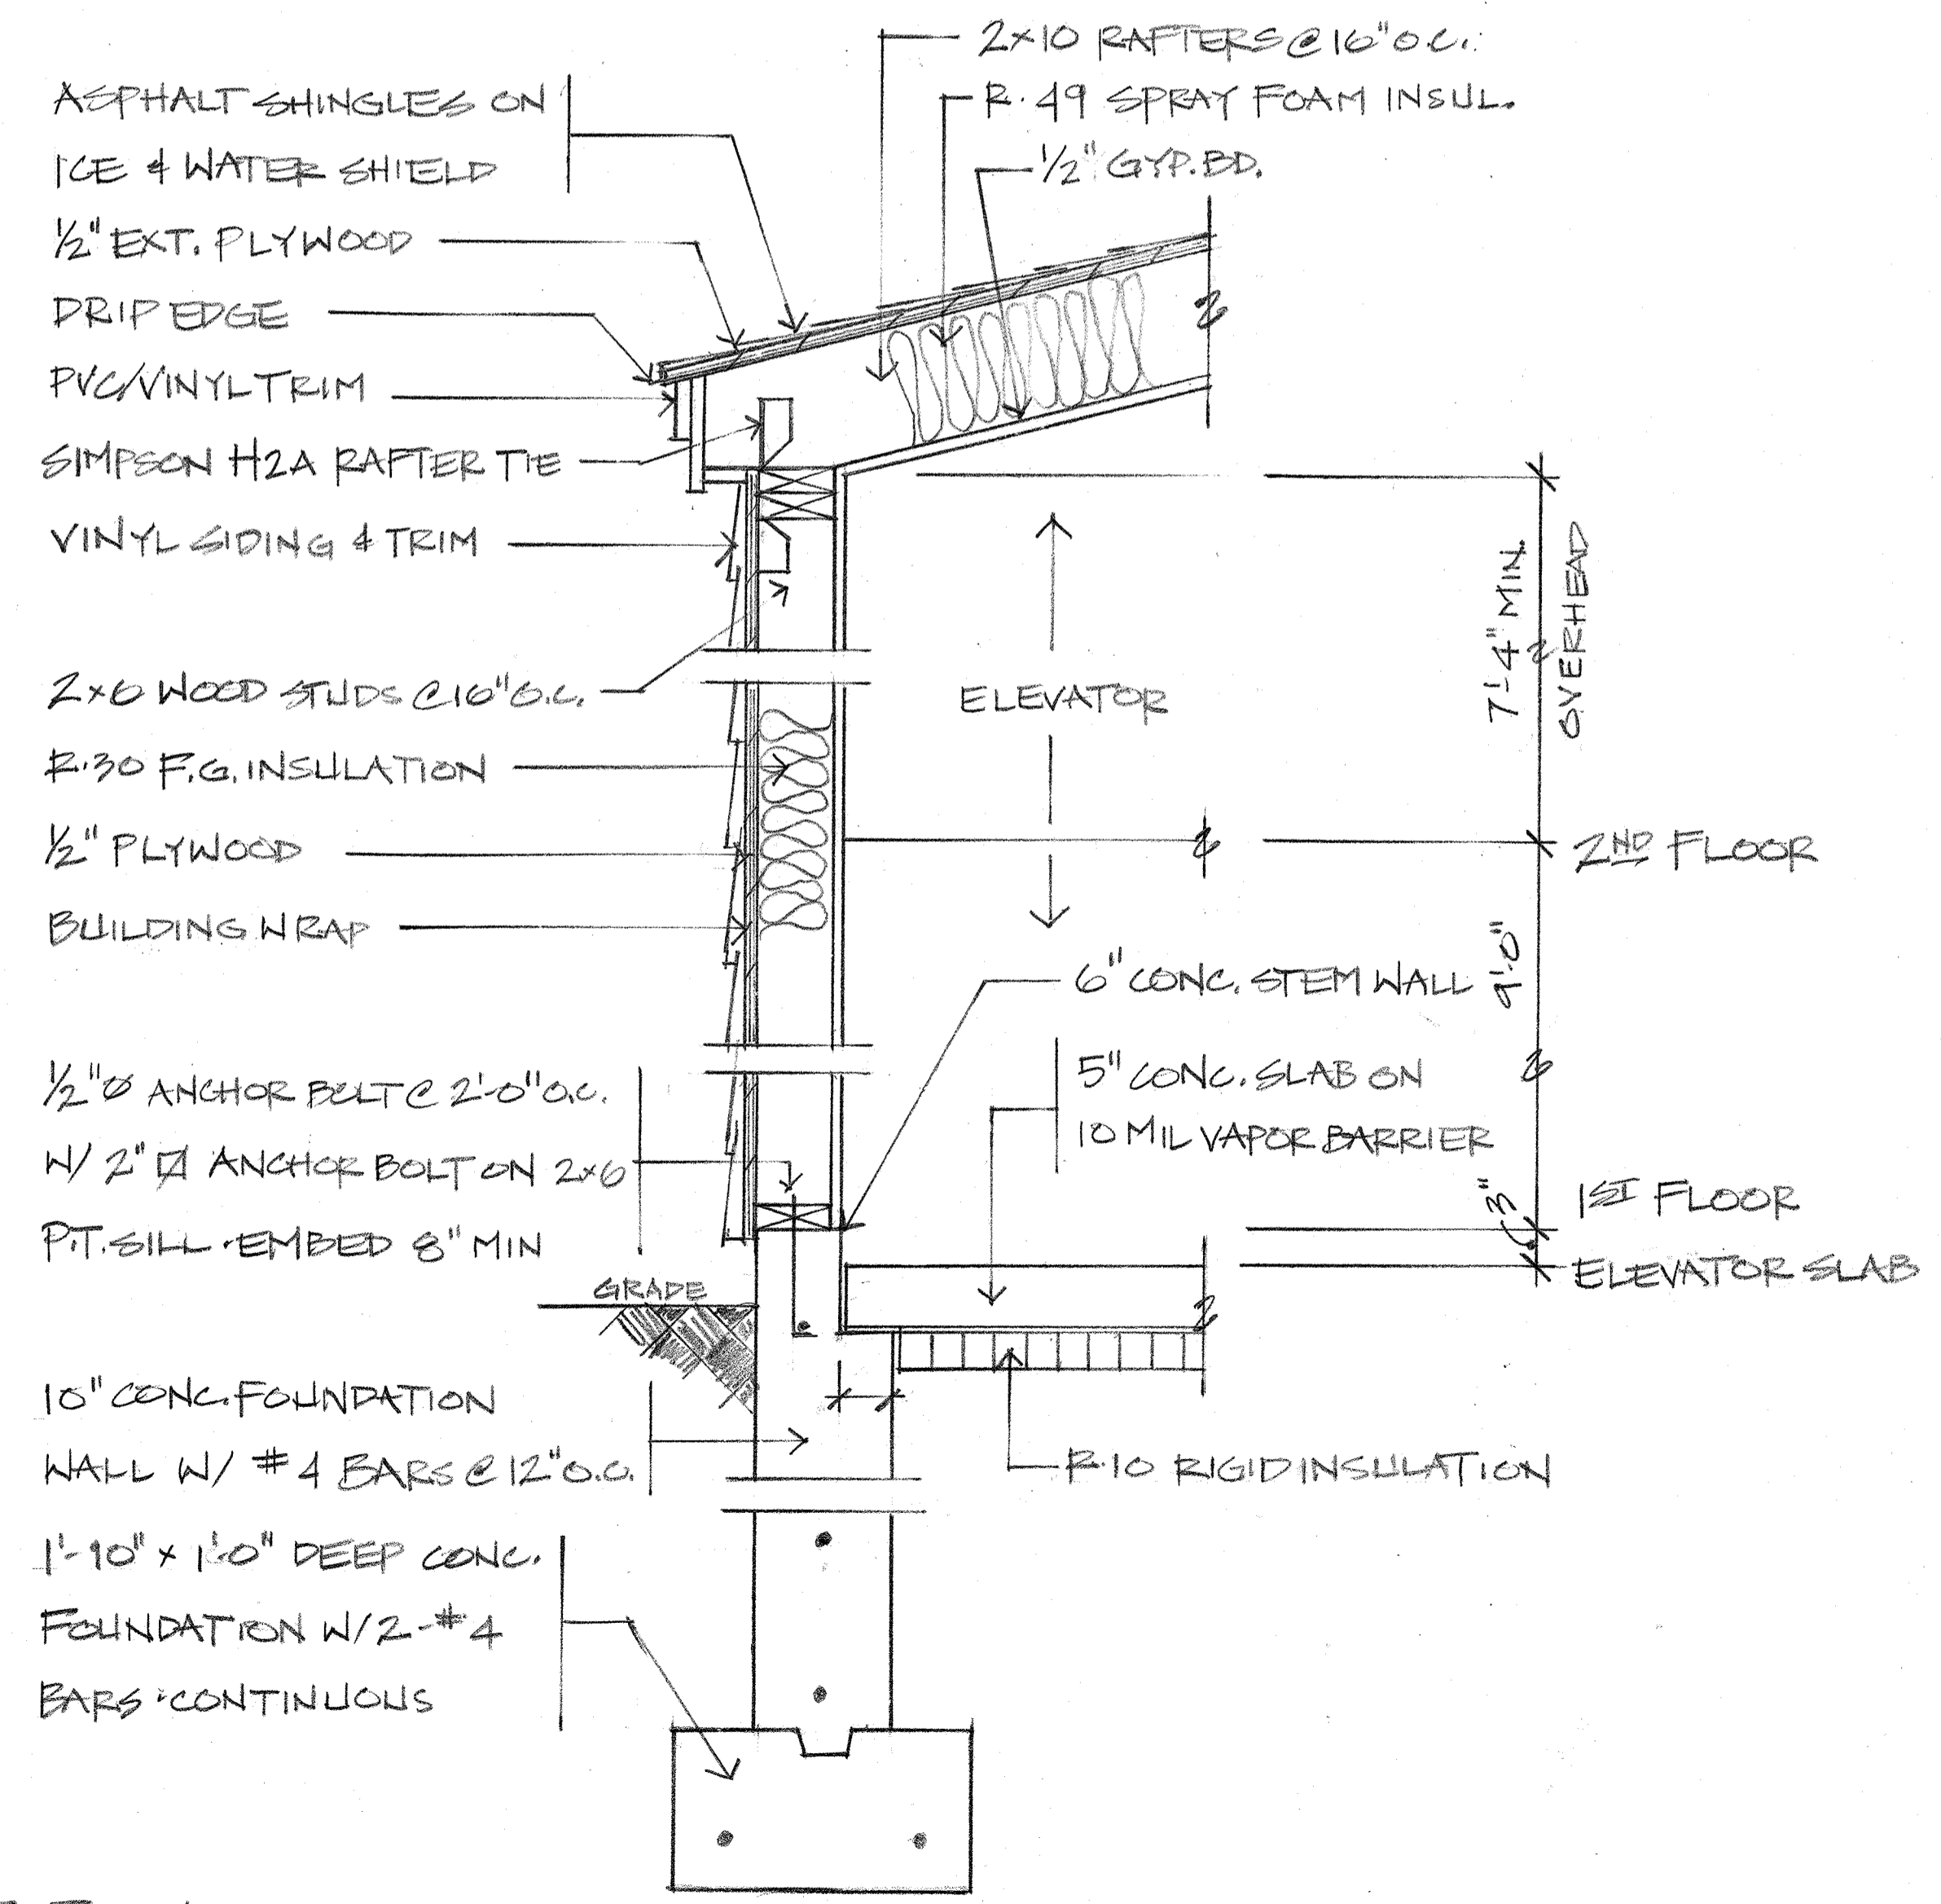 2x10 RAFTERS @ 16" O.C.
R-49 SPRAY FOAM INSUL.
1/2" GYP. BD.
ASPHALT SHINGLES ON
ICE & WATER SHIELD
1/2" EXT. PLYWOOD
DRIP EDGE
PVC/VINYL TRIM
SIMPSON H2A RAFTER TIE
VINYL SIDING & TRIM
2x6 WOOD STUDS @ 16" O.C.
R-30 F.G. INSULATION
1/2" PLYWOOD
BUILDING WRAP
1/2" Ø ANCHOR BOLT @ 2'-0" O.C.
W/ 2" ANCHOR BOLT ON 2x6
P.T. SILL · EMBED 8" MIN
GRADE
10" CONC. FOUNDATION
WALL W/ #4 BARS @ 12" O.C.
1'-10" x 1'-0" DEEP CONC.
FOUNDATION W/ 2-#4
BARS · CONTINUOUS
ELEVATOR
7'-4" MIN.
OVERHEAD
2ND FLOOR
9'-0"
6" CONC. STEM WALL
5" CONC. SLAB ON
10 MIL VAPOR BARRIER
1ST FLOOR
3"
ELEVATOR SLAB
R-10 RIGID INSULATION